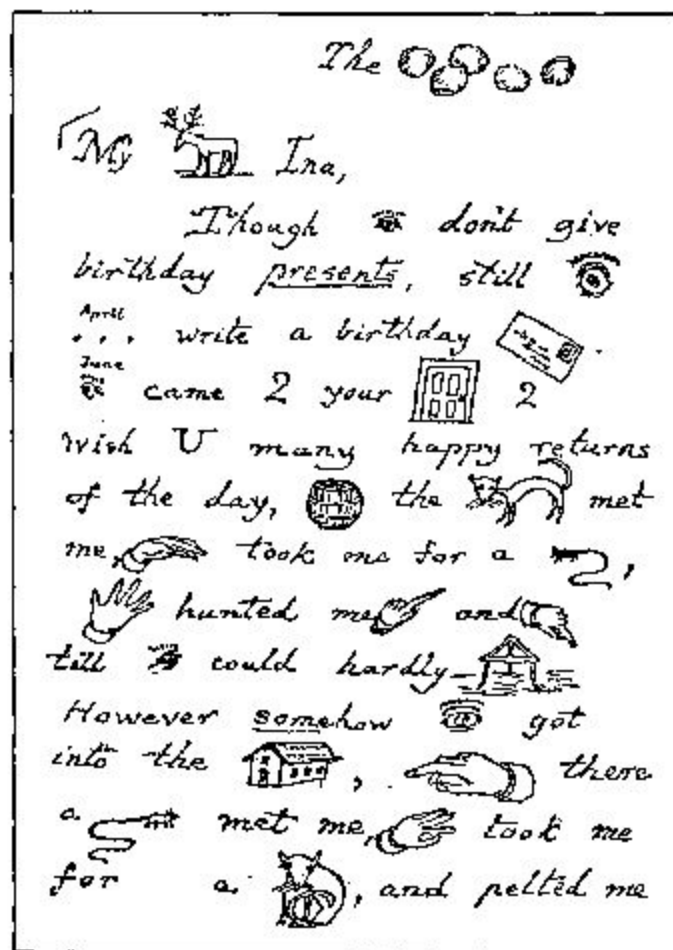 The
My Ina,
Though don't give
birthday presents, still
April
... write a birthday
June
came 2 your 2
wish U many happy returns
of the day, the met
me, took me for a ,
hunted me and
till could hardly
However somehow got
into the , there
a met me, took me
for a , and pelted me